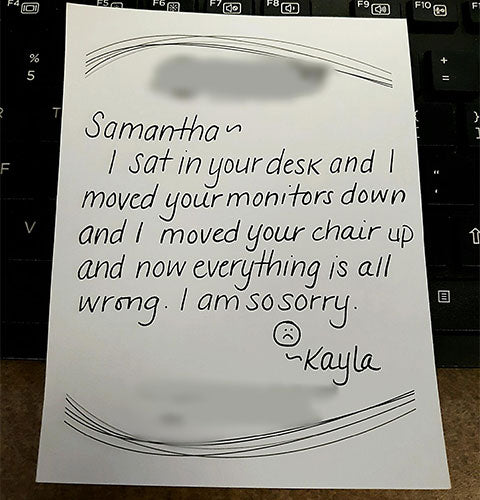 F4 F5 F6 F7 F8 F9 F10
%
5
+
=
Samantha~
I sat in your desk and I
moved your monitors down
and I moved your chair up
and now everything is all
wrong. I am so sorry.
~Kayla
F
V